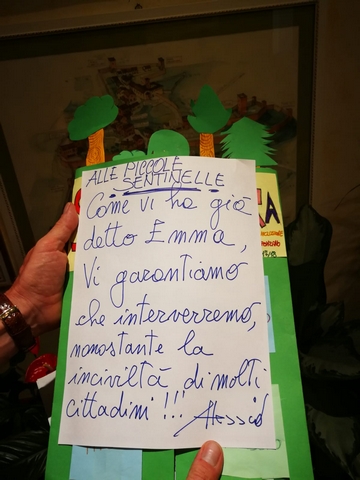 ALLE PICCOLE
SENTINELLE
Come vi ha già
detto Emma,
Vi garantiamo
che interverremo,
nonostante la
inciviltà di molti
cittadini!!! Alessio
A